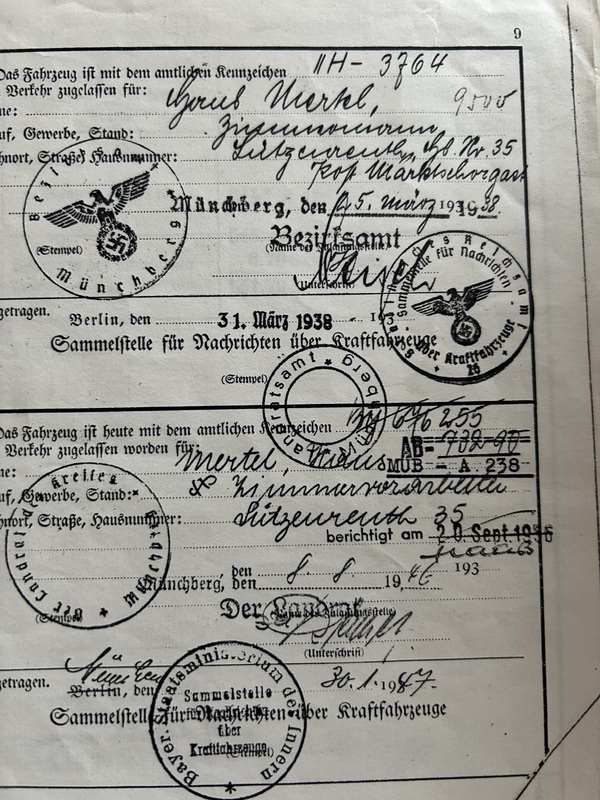 9
Das Fahrzeug ist mit dem amtlichen Kennzeichen IIH-3764
Verkehr zugelassen für:
me: Hans Mertel, 9500
uf, Gewerbe, Stand: Zimmermann,
hnort, Straße, Hausnummer: Lützenreuth, Hs. Nr. 35
Post Marktschorgast
Münchberg, den 15. März 1938
Bezirksamt
(Stempel)
(Unterschrift)
Bezirksamt Münchberg
getragen. Berlin, den 31. März 1938 193
Sammelstelle für Nachrichten über Kraftfahrzeuge
(Stempel)
Sammelstelle für Nachrichten über Kraftfahrzeuge
26
Landratsamt Münchberg
Das Fahrzeug ist heute mit dem amtlichen Kennzeichen By 676255
AB-732-90
Verkehr zugelassen worden für:
me: Mertel, Hans MÜB - A 238
uf, Gewerbe, Stand: Zimmervorarbeiter
hnort, Straße, Hausnummer: Lützenreuth 35
berichtigt am 20. Sept. 1956
den 193
Münchberg, den 8. 8. 1946
Der Landrat
(Stempel)
(Unterschrift)
Der Landrat des Kreises Münchberg
München
getragen. Berlin, den 30.1.1947.
Sammelstelle für Nachrichten über Kraftfahrzeuge
(Stempel)
Bayer. Staatsministerium des Innern
Sammelstelle
für Nachrichten
über
Kraftfahrzeuge